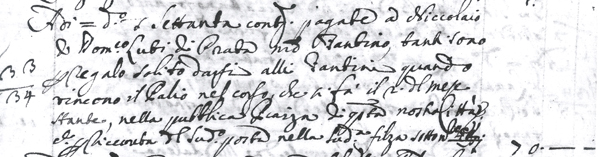 Adi = d.º s Settanta contj pagate ad Niccolaio
di Domco Luti di Prata mro fantino, tanti sono
33 Regalo solito darsi alli fantini quando
34 vincono il Palio nel corso, che si fà il 2. dl mese
stante, nella pubblica Piazza di qsta nostra Città,
ca Riceuuta dl sud.º posta nella sud.a filza sotto n.º 70.—.—